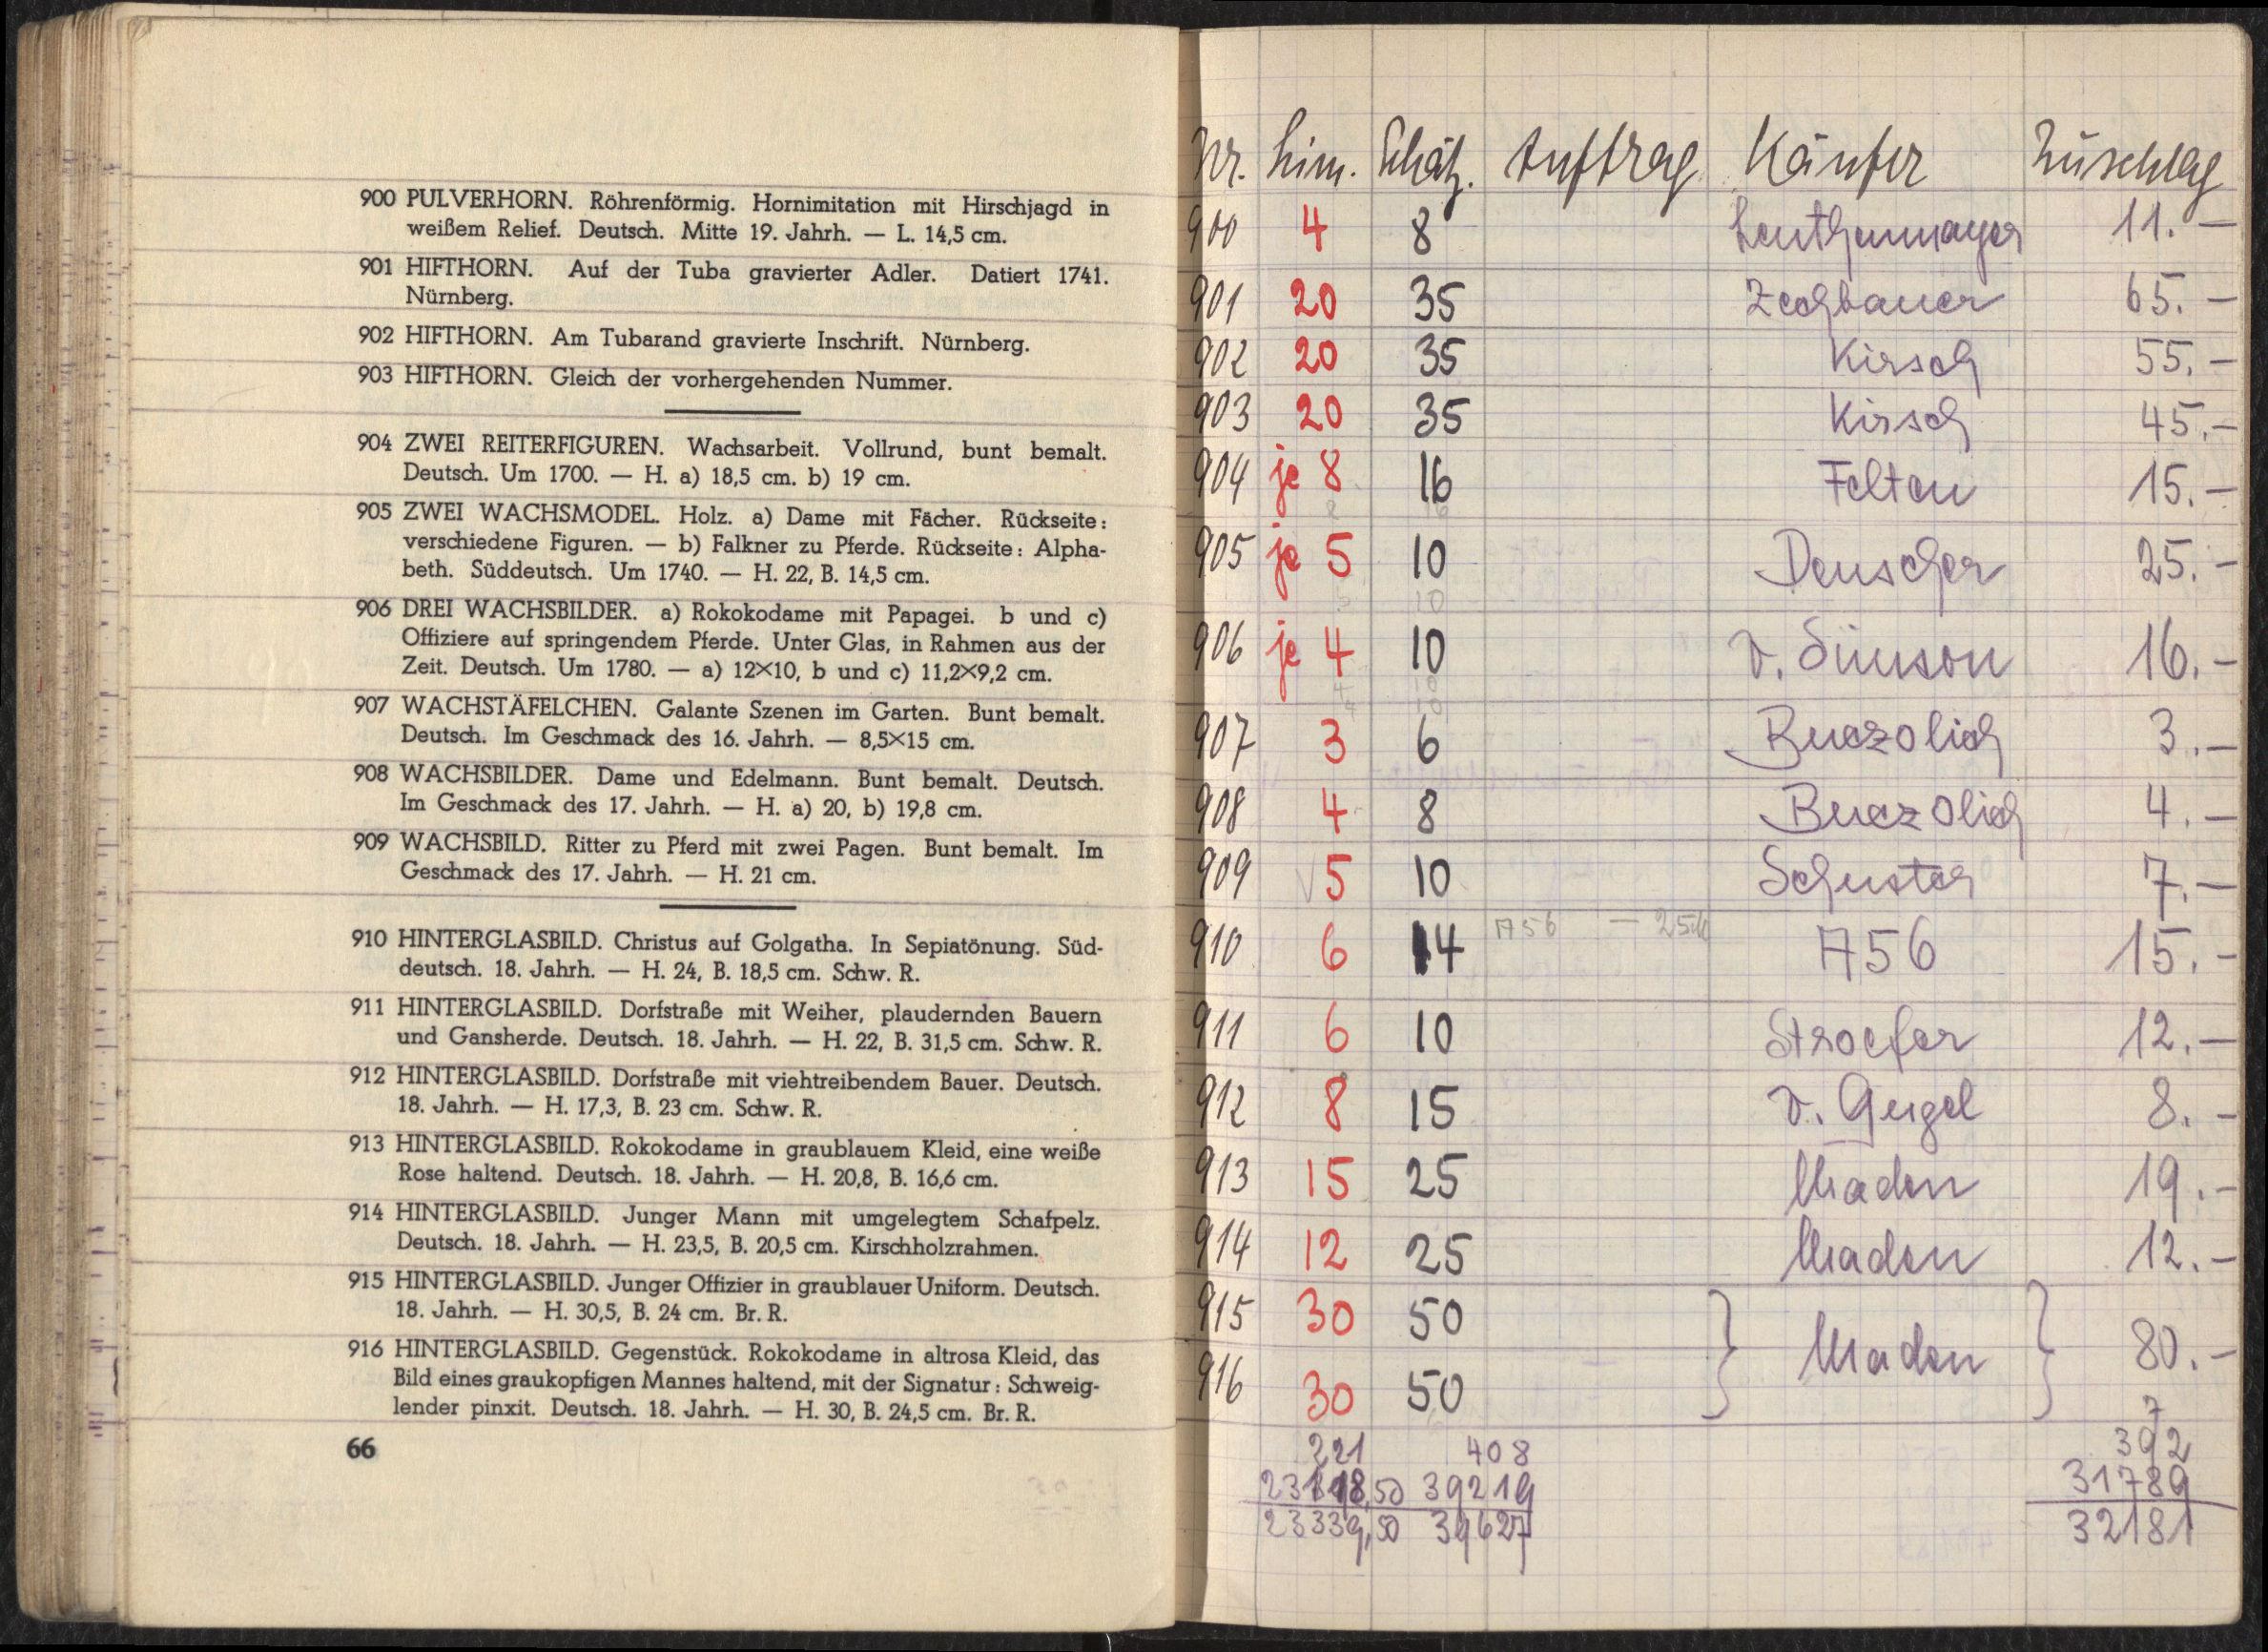 900 PULVERHORN. Röhrenförmig. Hornimitation mit Hirschjagd in
weißem Relief. Deutsch. Mitte 19. Jahrh. — L. 14,5 cm.
901 HIFTHORN. Auf der Tuba gravierter Adler. Datiert 1741.
Nürnberg.
902 HIFTHORN. Am Tubarand gravierte Inschrift. Nürnberg.
903 HIFTHORN. Gleich der vorhergehenden Nummer.
904 ZWEI REITERFIGUREN. Wachsarbeit. Vollrund, bunt bemalt.
Deutsch. Um 1700. — H. a) 18,5 cm. b) 19 cm.
905 ZWEI WACHSMODEL. Holz. a) Dame mit Fächer. Rückseite:
verschiedene Figuren. — b) Falkner zu Pferde. Rückseite: Alpha-
beth. Süddeutsch. Um 1740. — H. 22, B. 14,5 cm.
906 DREI WACHSBILDER. a) Rokokodame mit Papagei. b und c)
Offiziere auf springendem Pferde. Unter Glas, in Rahmen aus der
Zeit. Deutsch. Um 1780. — a) 12×10, b und c) 11,2×9,2 cm.
907 WACHSTÄFELCHEN. Galante Szenen im Garten. Bunt bemalt.
Deutsch. Im Geschmack des 16. Jahrh. — 8,5×15 cm.
908 WACHSBILDER. Dame und Edelmann. Bunt bemalt. Deutsch.
Im Geschmack des 17. Jahrh. — H. a) 20, b) 19,8 cm.
909 WACHSBILD. Ritter zu Pferd mit zwei Pagen. Bunt bemalt. Im
Geschmack des 17. Jahrh. — H. 21 cm.
910 HINTERGLASBILD. Christus auf Golgatha. In Sepiatönung. Süd-
deutsch. 18. Jahrh. — H. 24, B. 18,5 cm. Schw. R.
911 HINTERGLASBILD. Dorfstraße mit Weiher, plaudernden Bauern
und Gansherde. Deutsch. 18. Jahrh. — H. 22, B. 31,5 cm. Schw. R.
912 HINTERGLASBILD. Dorfstraße mit viehtreibendem Bauer. Deutsch.
18. Jahrh. — H. 17,3, B. 23 cm. Schw. R.
913 HINTERGLASBILD. Rokokodame in graublauem Kleid, eine weiße
Rose haltend. Deutsch. 18. Jahrh. — H. 20,8, B. 16,6 cm.
914 HINTERGLASBILD. Junger Mann mit umgelegtem Schafpelz.
Deutsch. 18. Jahrh. — H. 23,5, B. 20,5 cm. Kirschholzrahmen.
915 HINTERGLASBILD. Junger Offizier in graublauer Uniform. Deutsch.
18. Jahrh. — H. 30,5, B. 24 cm. Br. R.
916 HINTERGLASBILD. Gegenstück. Rokokodame in altrosa Kleid, das
Bild eines graukopfigen Mannes haltend, mit der Signatur: Schweig-
lender pinxit. Deutsch. 18. Jahrh. — H. 30, B. 24,5 cm. Br. R.
66
Nr. Lim. Schätz. Auftrag Käufer Zuschlag
900 4 8 11.—
901 20 35 Zechbauer 65.—
902 20 35 Kirsch 55.—
903 20 35 Kirsch 45.—
904 je 8 16 Felten 15.—
905 je 5 10 Deuscher 25.—
5 10
906 je 4 10 v. Simson 16.—
4 10
4 10
907 3 6 Buczolich 3.—
908 4 8 Buczolich 4.—
909 5 10 Schuster 7.—
910 6 14 A56 — A56 15.—
911 6 10 Stroefer 12.—
912 8 15 v. Geigel 8.—
913 15 25 Maden 19.—
914 12 25 Maden 12.—
915 30 50
Maden 80.—
916 30 50
7
221 408 392
39219 31789
23339,50 39627 32181